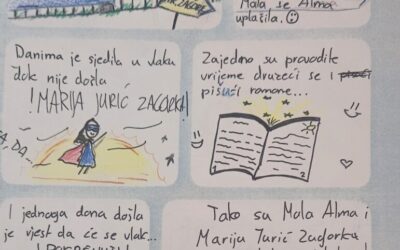 ZAGOR
Mala se Alma
uplašila.
Danima je sjedila u vlaku
dok nije došla
! MARIJA JURIĆ ZAGORKA!
A, ĐA...
Zajedno su provodile
vrijeme družeći se i
pišući romane...
I jednoga dana došla
je vijest da će se vlak...
Tako su Mala Alma i
Marija Jurić Zagorka